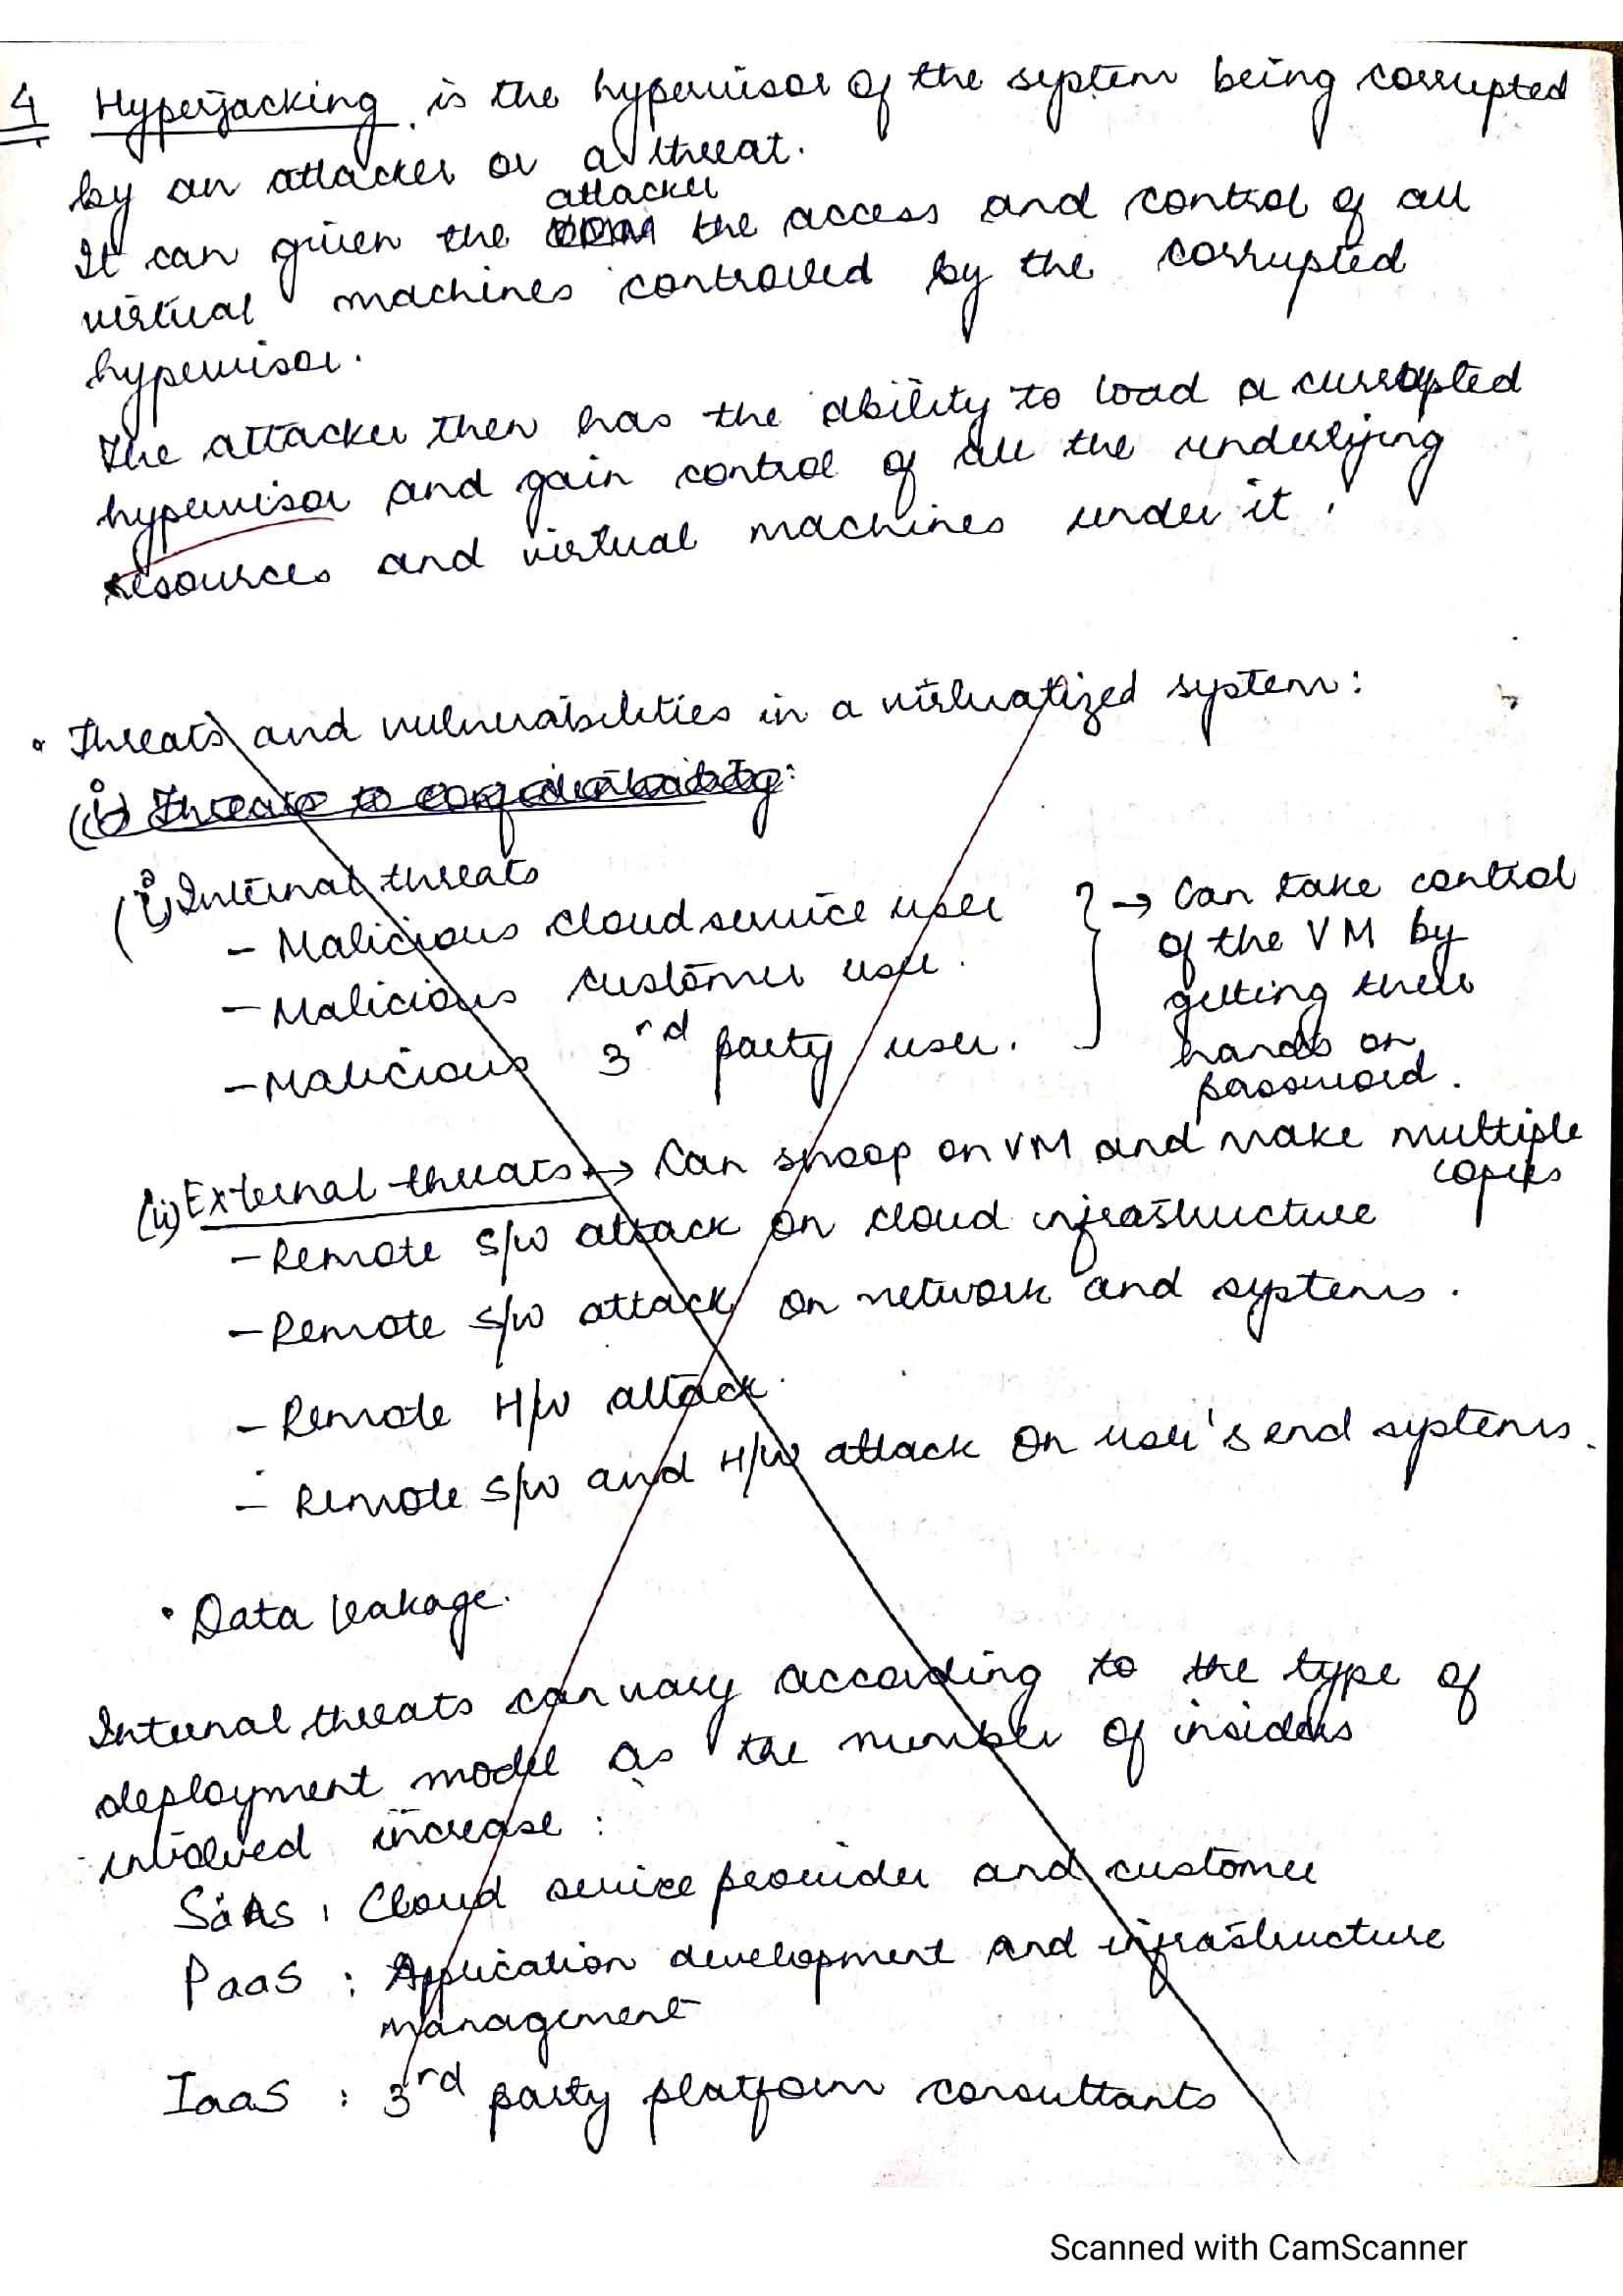 4 Hyperjacking is the hypervisor of the system being corrupted
by an attacker or a threat.
attacker
It can given the the access and control of all
virtual machines controlled by the corrupted
hypervisor.
The attacker then has the ability to load a currupted
hypervisor and gain control of all the underlying
resources and virtual machines under it.
• Threats and vulnerabilities in a virtualized system:
(i) Threats to confidentiality:
(i) Internal threats
- Malicious cloud service user
- Malicious customer user.
- Malicious 3rd party user.
} → Can take control
of the VM by
getting their
hands on
password.
(ii) External threats → Can snoop on VM and make multiple
copies
- Remote S/W attack on cloud infrastructure
- Remote S/W attack on network and systems.
- Remote H/W attack.
- Remote S/W and H/W attack on user's end systems.
• Data leakage.
Internal threats can vary according to the type of
deployment model as the number of insiders
involved increase:
SaAs : Cloud service provider and customer
PaaS : Application development and infrastructure
management
IaaS : 3rd party platform consultants
Scanned with CamScanner